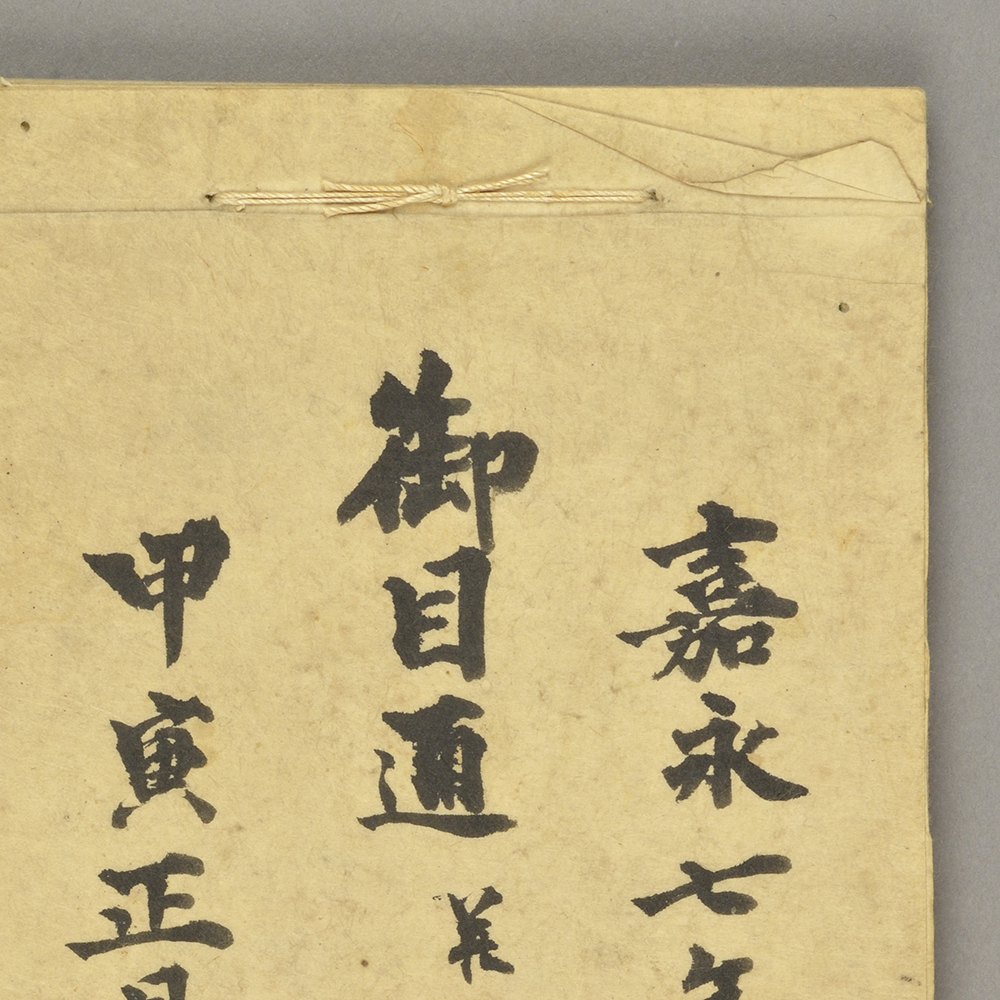 嘉永七年
御目通
甲寅正月